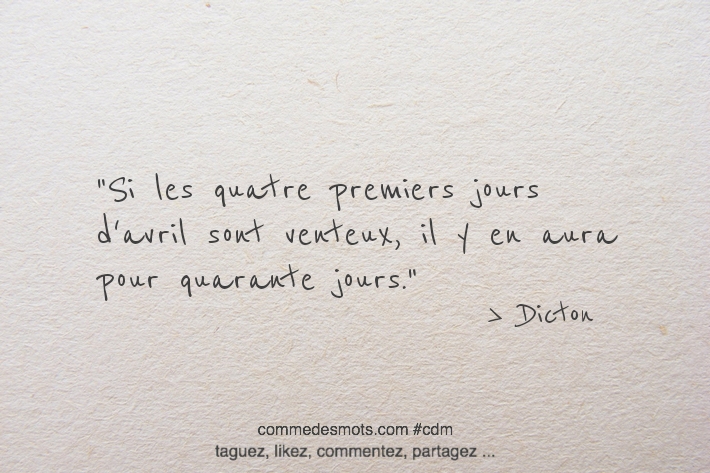 "Si les quatre premiers jours
d'avril sont venteux, il y en aura
pour quarante jours."
> Dicton
commedesmots.com #cdm
taguez, likez, commentez, partagez ...